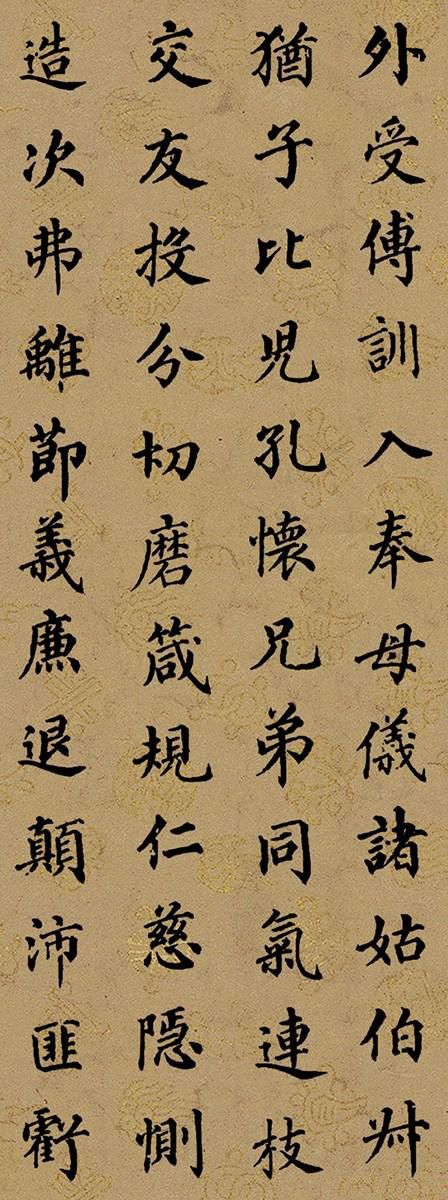 外受傅訓入奉母儀諸姑伯叔
猶子比児孔懷兄弟同氣連枝
交友投分切磨箴規仁慈隱惻
造次弗離節義廉退顛沛匪虧